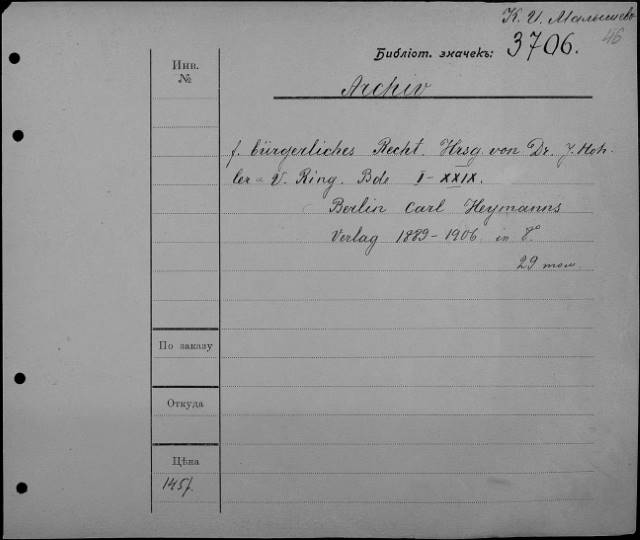 К. И. Малышевъ
46
Библіот. значекъ: 3706.
Инв.
№
Archiv
f. bürgerliches Recht. Hrsg. von Dr. J. Koh-
ler u V. Ring. Bde I-XXIX.
Berlin Carl Heymanns
Verlag 1889-1906. in 8°
29 том.
По заказу
Откуда
Цѣна
145р.